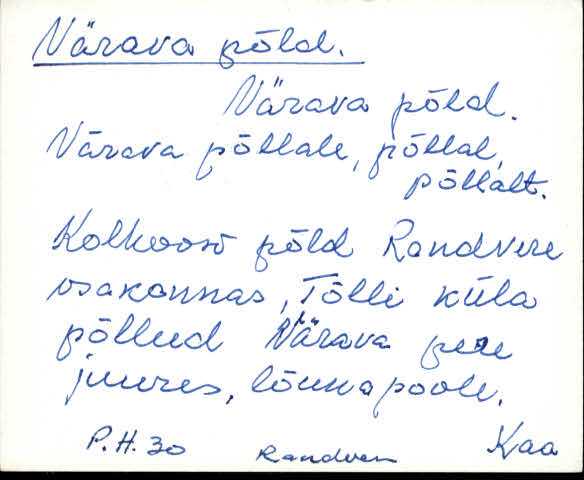 Värava põld.
Värava põld.
Värava põllale, põllal,
põllalt.
Kolhoosi põld Randvere
osakonnas, Tõlli küla
põllud Värava pere
juures, lõunapoole.
P.H. 30 Randvere Kaa